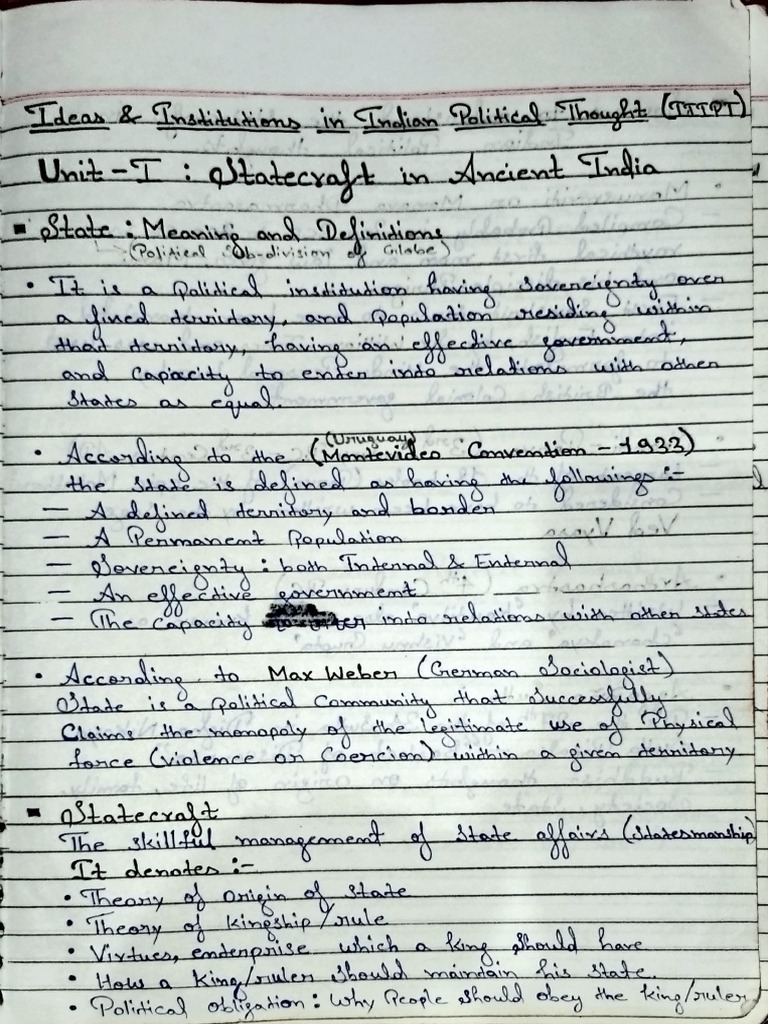 Ideas & Institutions in Indian Political Thought (IIIPT)
Unit-I : Statecraft in Ancient India
▪ State : Meaning and Definitions
(Political Sub-division of Globe)
• It is a political institution having sovereignty over
a fixed territory, and population residing within
that territory, having an effective government,
and capacity to enter into relations with other
states as equal.
(Uruguay)
• According to the (Montevideo Convention - 1933)
the state is defined as having the followings :-
— A defined territory and border
— A Permanent Population
— Sovereignty : both Internal & External
— An effective government
— The capacity to enter into relations with other states
• According to Max Weber (German Sociologist)
State is a political Community that successfully
Claims the monopoly of the legitimate use of Physical
force (violence or Coercion) within a given territory
▪ Statecraft
The skillful management of state affairs (statesmanship)
It denotes :-
• Theory of origin of state
• Theory of kingship/rule
• Virtues, enterprise which a king should have
• How a king/ruler should maintain his state.
• Political obligation : Why People should obey the king/ruler